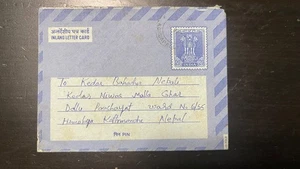 अन्तर्देशीय पत्र कार्ड
INLAND LETTER CARD
To Kedar Bahadur Nepali
Kedar Niwas Malla Ghar
Dallu Panchayat Ward No
Kathmandu Nepal
पिन PIN